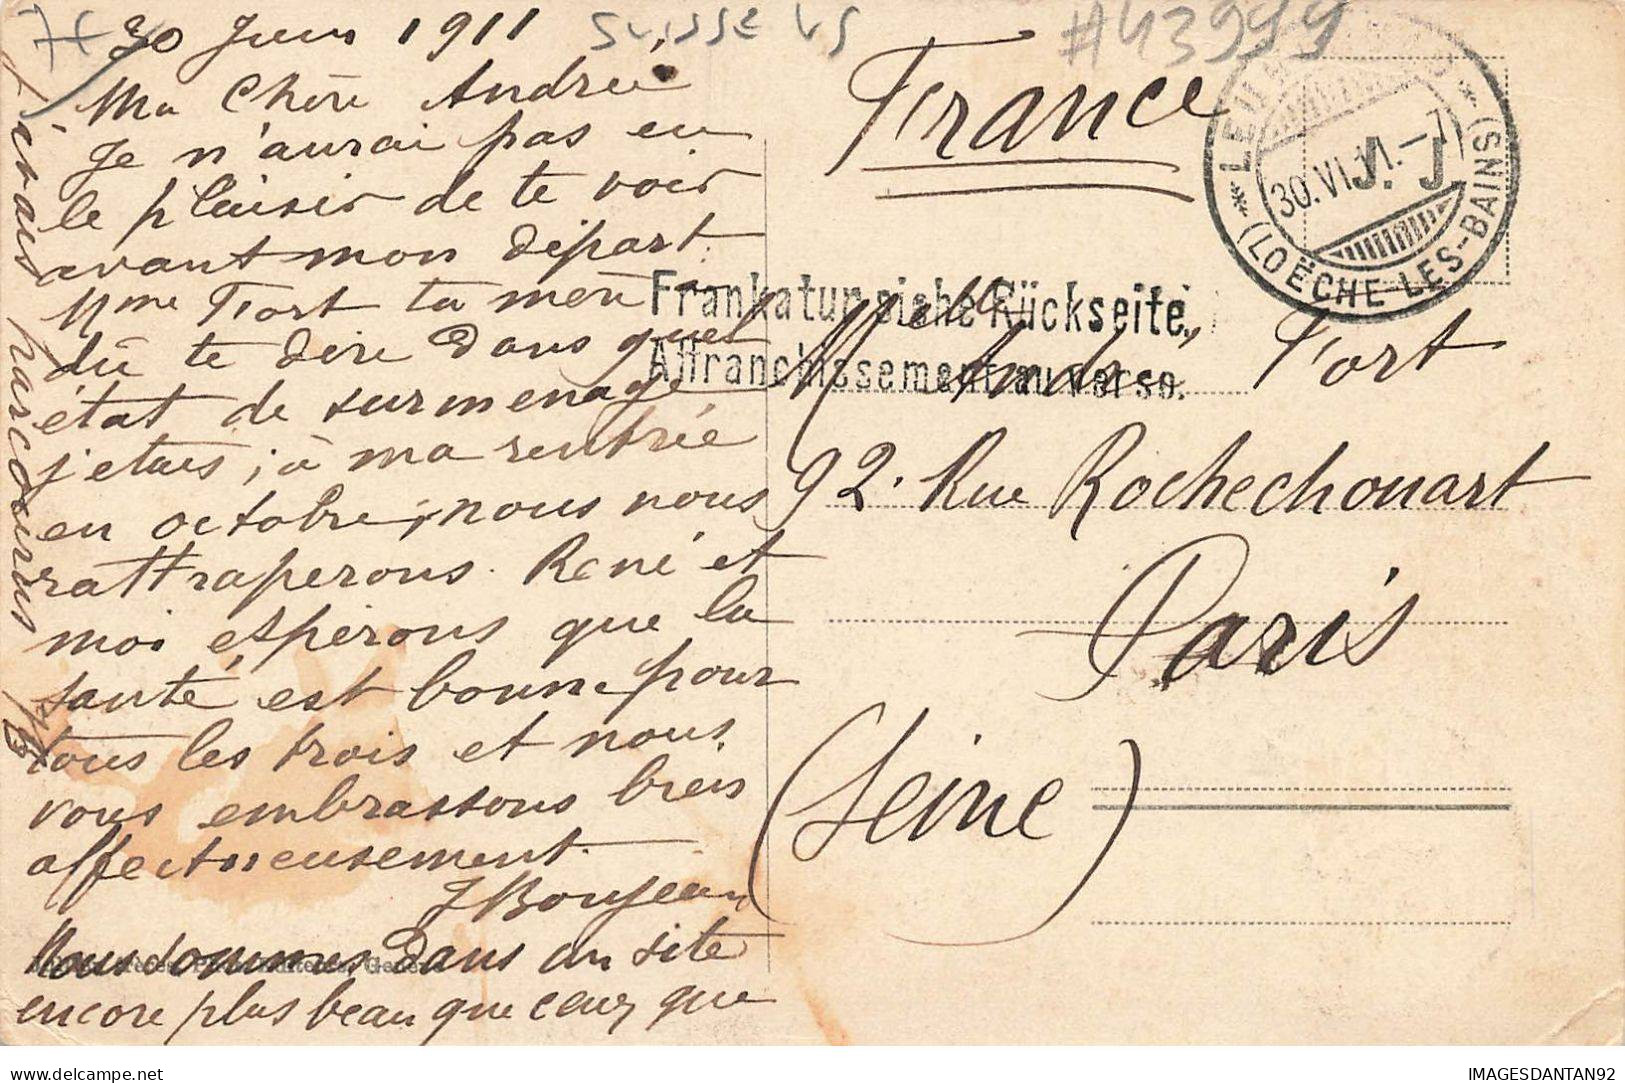 30 Juin 1911
SUISSE VS
#43999
Ma Chère Andrée
Je n'aurai pas eu
le plaisir de te voir
avant mon départ.
Mme Fort ta mère
dû te dire dans quel
état de surmenage
j'etais; à ma rentrée
en octobre, nous nous
rattraperons. René et
moi espérons que la
santé est bonne pour
tous les trois et nous
vous embrassons bien
affectueusement.
J Boujean
Nous sommes dans un site
encore plus beau que ceux que
j'avais parcourus
France
LEUK
30.VI.11.-7
J. J
(LOËCHE-LES-BAINS)
Frankatur siehe Rückseite.
Affranchissement au verso.
Melle Andrée Fort
92. Rue Rochechouart
Paris
(Seine)
IMAGESDANTAN92
delcampe.net